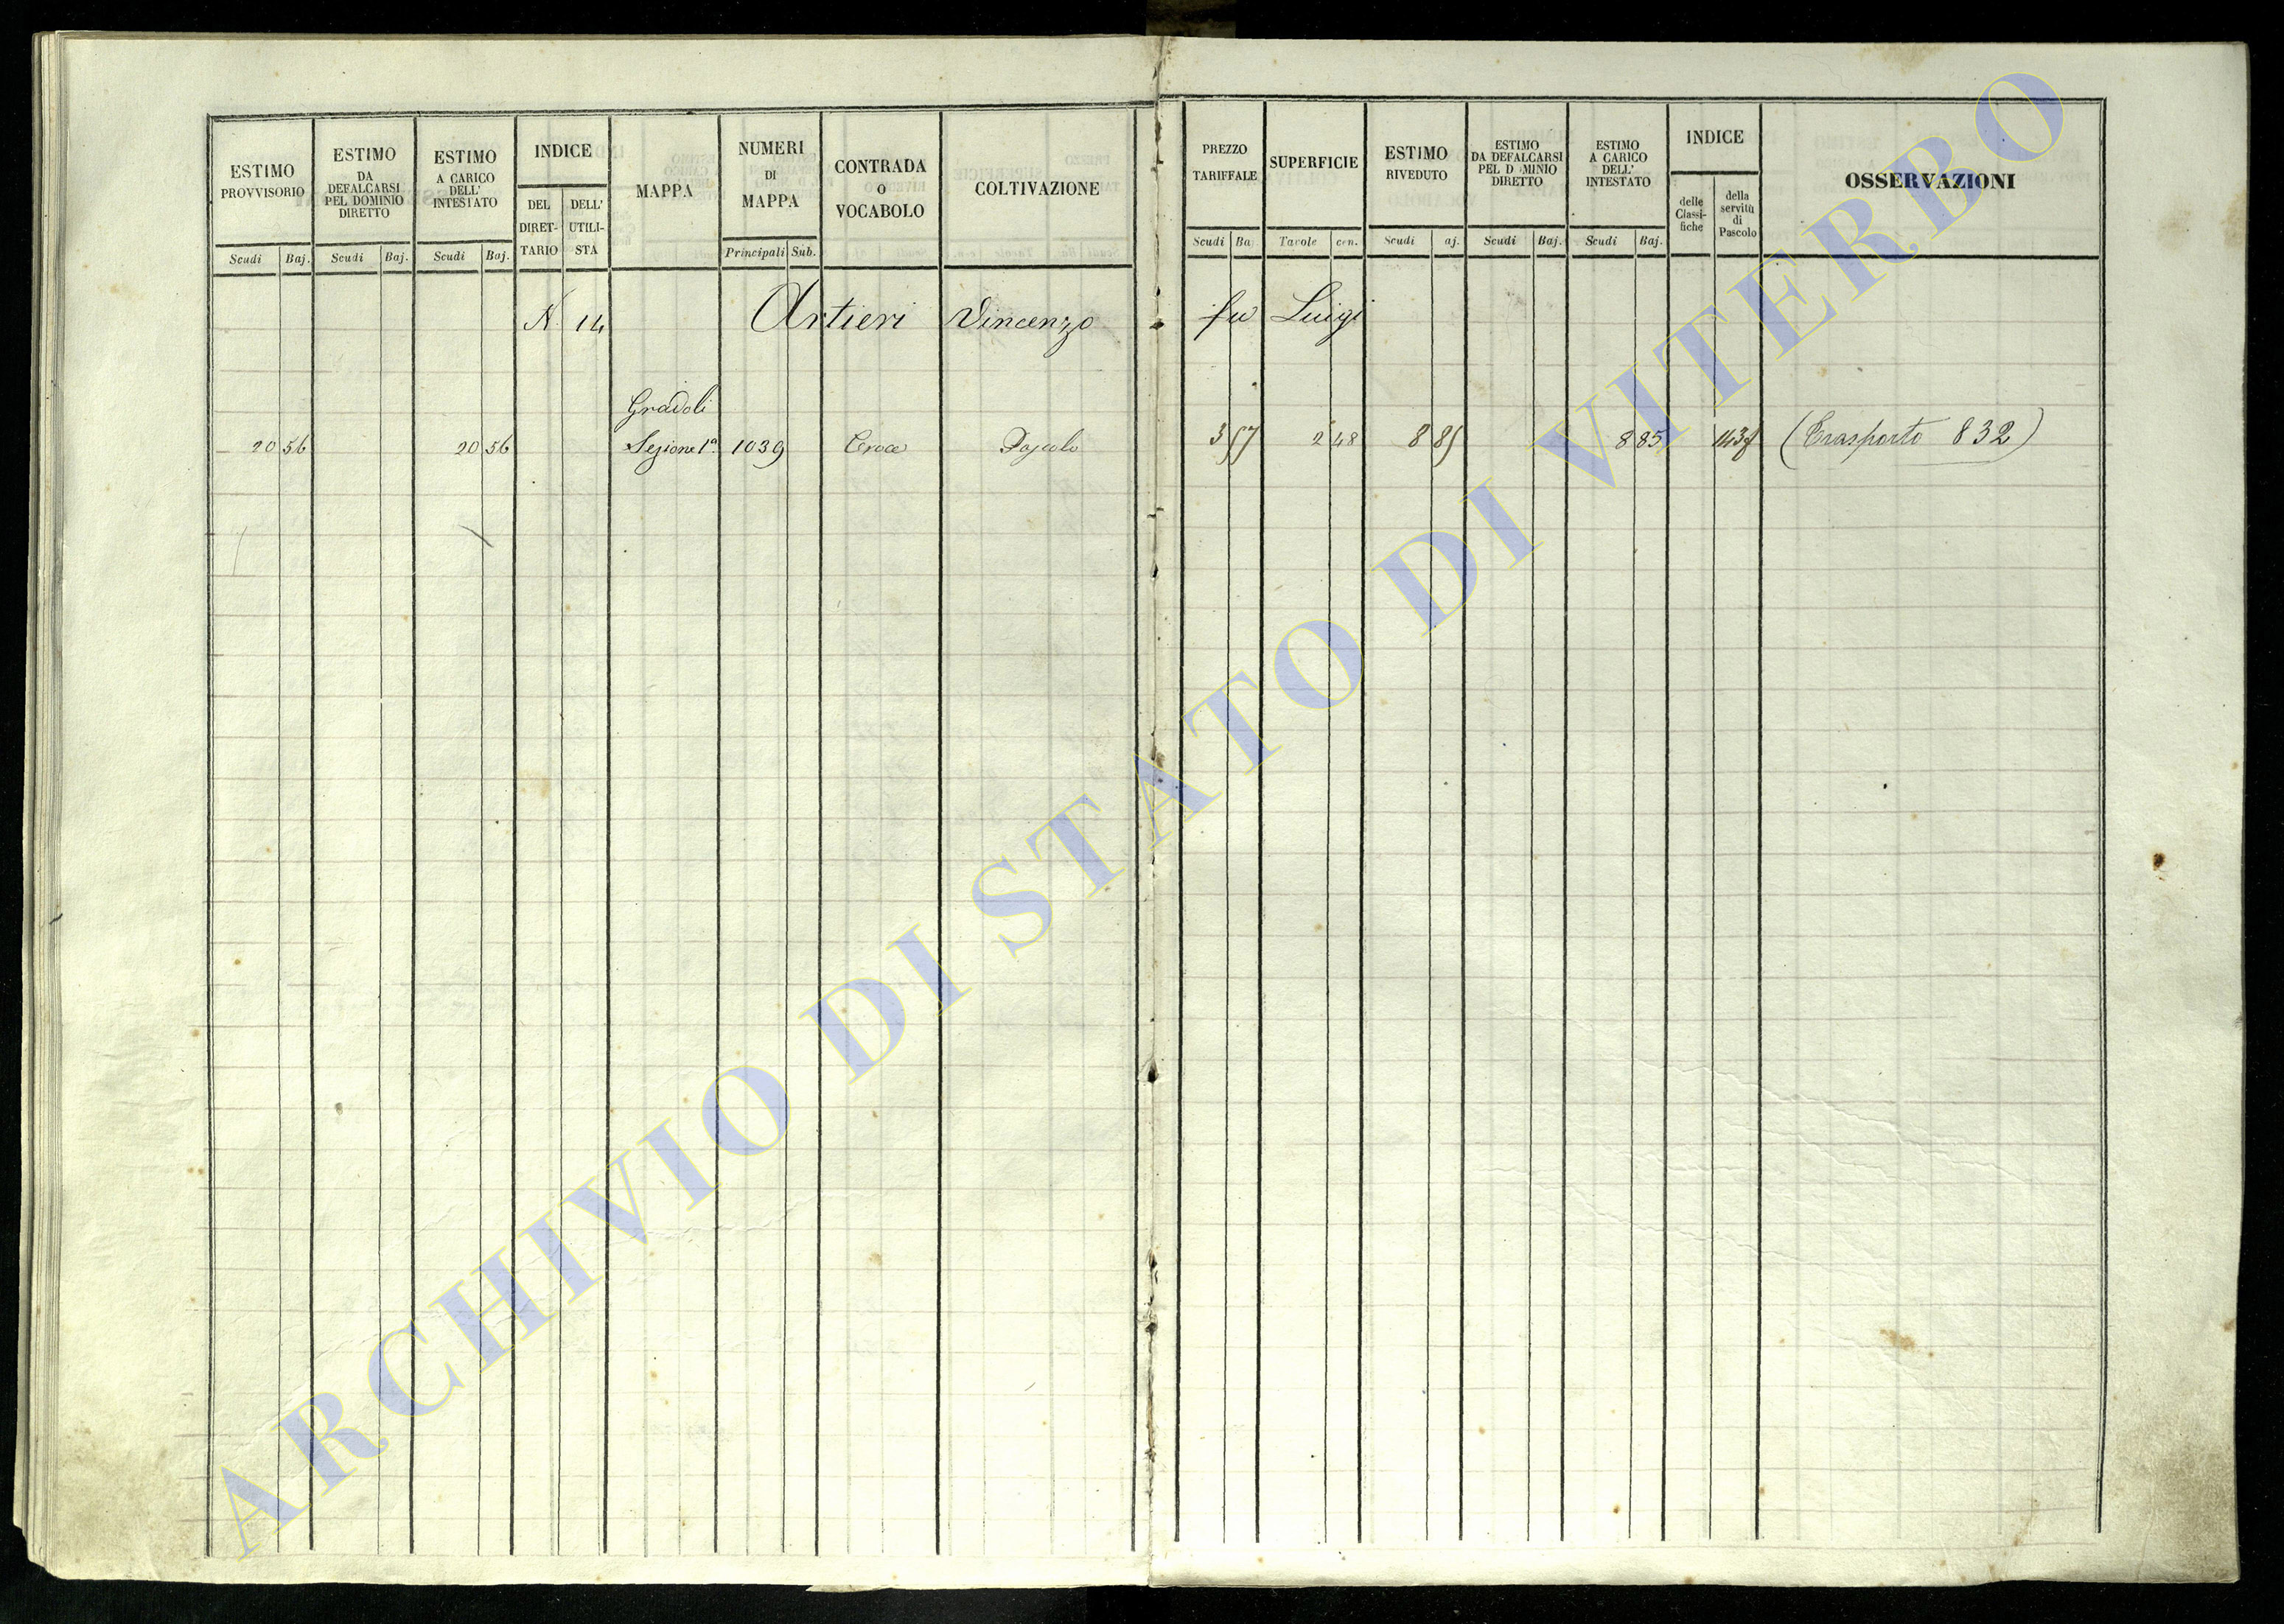 ESTIMO PROVVISORIO
Scudi Baj.
ESTIMO DA DEFALCARSI PEL DOMINIO DIRETTO
Scudi Baj.
ESTIMO A CARICO DELL' INTESTATO
Scudi Baj.
INDICE
DEL DIRET-TARIO
DELL' UTILI-STA
MAPPA
NUMERI DI MAPPA
Principali Sub.
CONTRADA O VOCABOLO
COLTIVAZIONE
PREZZO TARIFFALE
Scudi Ba
SUPERFICIE
Tavole cen.
ESTIMO RIVEDUTO
Scudi aj.
ESTIMO DA DEFALCARSI PEL D MINIO DIRETTO
Scudi Baj.
ESTIMO A CARICO DELL' INTESTATO
Scudi Baj.
INDICE
delle Classi-fiche
della servitù di Pascolo
OSSERVAZIONI
N. 14 Artieri Vincenzo fu Luigi
Gradoli
20 56 20 56 Sezione 1ª 1039 Croce Pascolo 3 57 2 48 8 85 8 85 (Trasporto 832)
ARCHIVIO DI STATO DI VITERBO